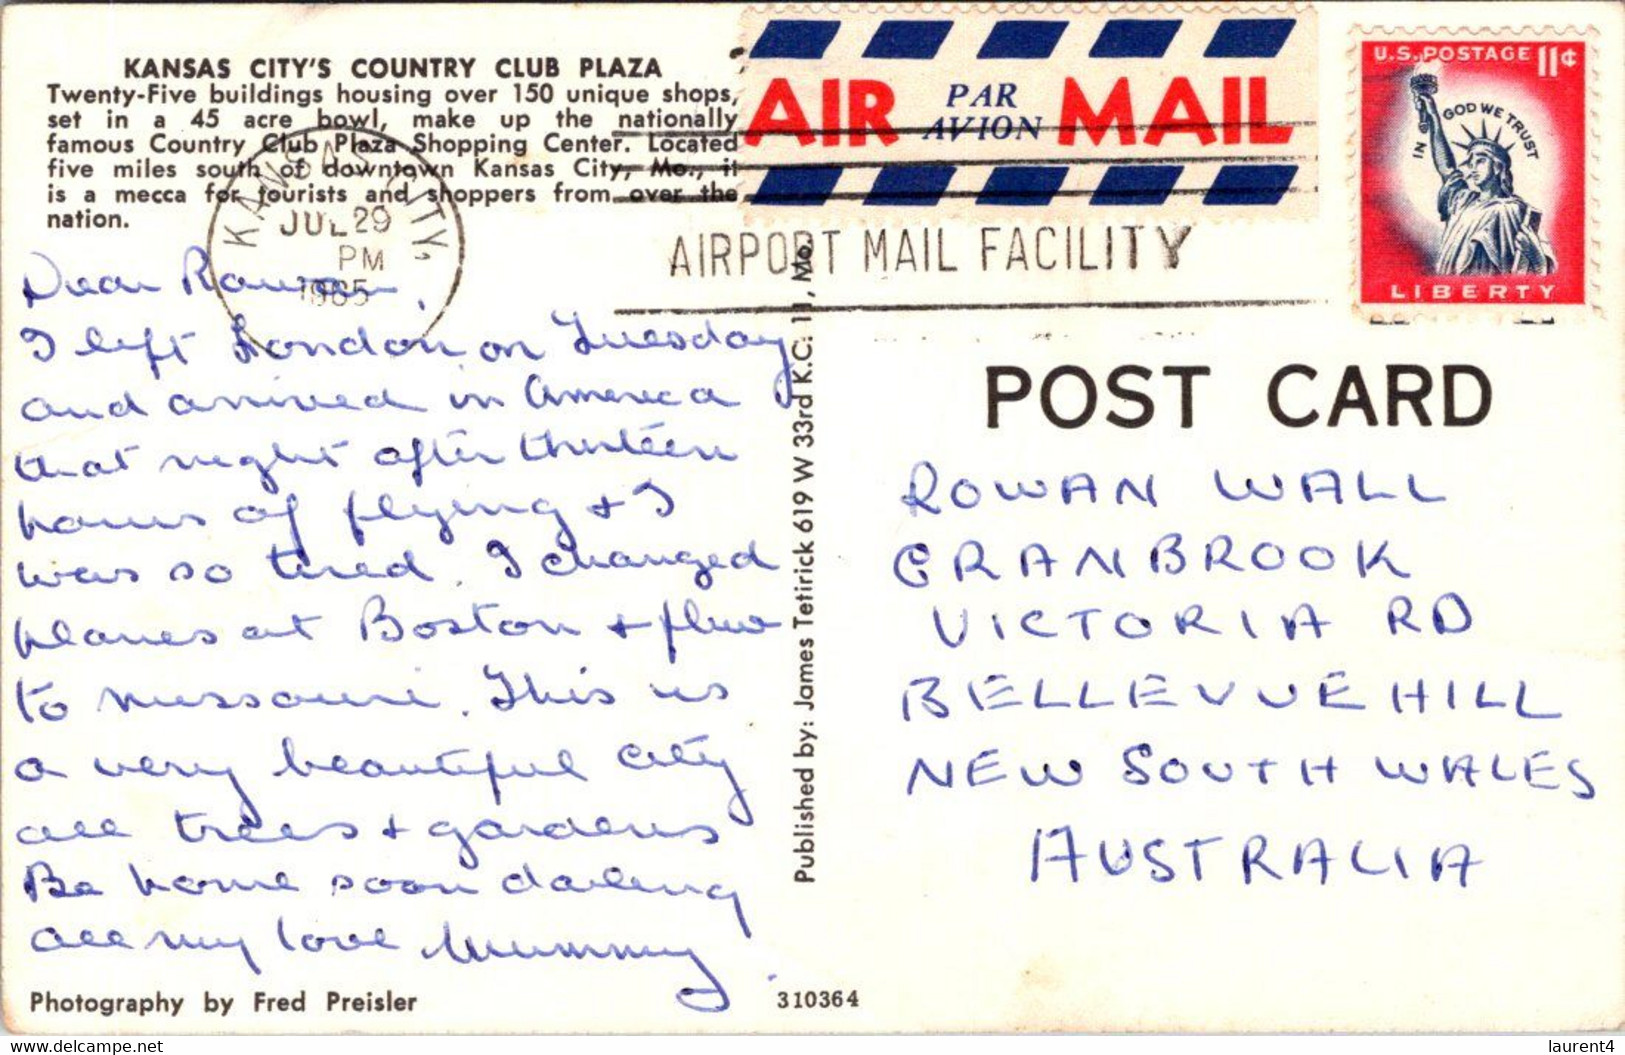 KANSAS CITY'S COUNTRY CLUB PLAZA
Twenty-Five buildings housing over 150 unique shops,
set in a 45 acre bowl, make up the nationally
famous Country Club Plaza Shopping Center. Located
five miles south of downtown Kansas City, Mo., it
is a mecca for tourists and shoppers from over the
nation.
AIR PAR AVION MAIL
U.S. POSTAGE 11¢
IN GOD WE TRUST
LIBERTY
KANSAS CITY,
JUL 29
PM
1965
AIRPORT MAIL FACILITY
Dear Rowan,
I left London on Tuesday
and arrived in America
that night after thirteen
hours of flying + I
was so tired. I changed
planes at Boston + flew
to Missouri. This is
a very beautiful city
all trees + gardens
Be home soon darling
all my love Mummy
Photography by Fred Preisler
Published by: James Tetirick 619 W 33rd K.C. 11, Mo.
310364
POST CARD
ROWAN WALL
CRANBROOK
VICTORIA RD
BELLEVUE HILL
NEW SOUTH WALES
AUSTRALIA
delcampe.net
laurent4